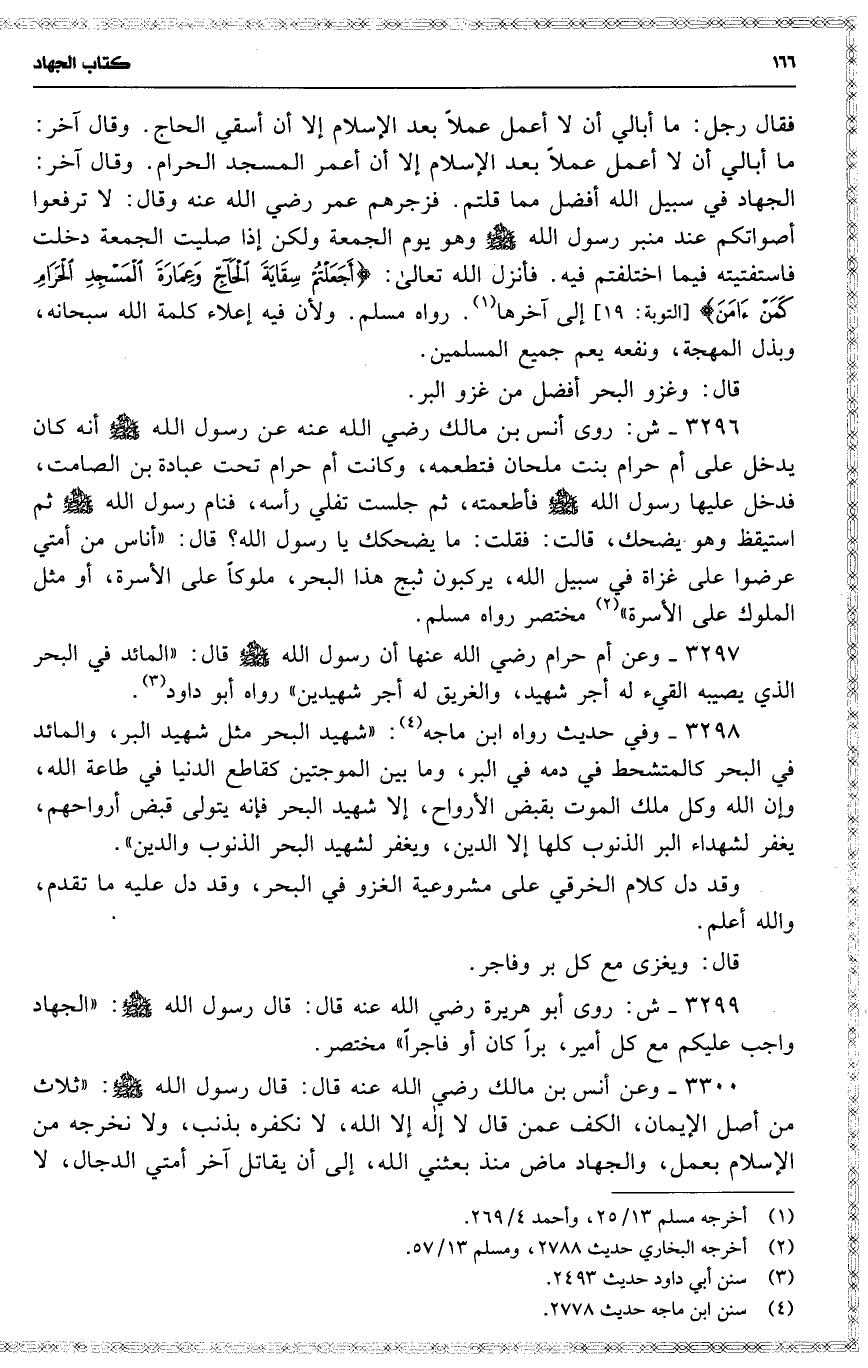 ١٦٦ كتاب الجهاد
فقال رجل: ما أبالي أن لا أعمل عملاً بعد الإسلام إلا أن أسقي الحاج. وقال آخر:
ما أبالي أن لا أعمل عملاً بعد الإسلام إلا أن أعمر المسجد الحرام. وقال آخر:
الجهاد في سبيل الله أفضل مما قلتم. فزجرهم عمر رضي الله عنه وقال: لا ترفعوا
أصواتكم عند منبر رسول الله ﷺ وهو يوم الجمعة ولكن إذا صليت الجمعة دخلت
فاستفتيته فيما اختلفتم فيه. فأنزل الله تعالىٰ: ﴿أَجَعَلْتُمْ سِقَايَةَ ٱلْحَآجِّ وَعِمَارَةَ ٱلْمَسْجِدِ ٱلْحَرَامِ
كَمَنْ ءَامَنَ﴾ [التوبة: ١٩] إلى آخرها(١). رواه مسلم. ولأن فيه إعلاء كلمة الله سبحانه،
وبذل المهجة، ونفعه يعم جميع المسلمين.
قال: وغزو البحر أفضل من غزو البر.
٣٢٩٦ ـ ش: روى أنس بن مالك رضي الله عنه عن رسول الله ﷺ أنه كان
يدخل على أم حرام بنت ملحان فتطعمه، وكانت أم حرام تحت عبادة بن الصامت،
فدخل عليها رسول الله ﷺ فأطعمته، ثم جلست تفلي رأسه، فنام رسول الله ﷺ ثم
استيقظ وهو يضحك، قالت: فقلت: ما يضحكك يا رسول الله؟ قال: «أناس من أمتي
عرضوا على غزاة في سبيل الله، يركبون ثبج هذا البحر، ملوكاً على الأسرة، أو مثل
الملوك على الأسرة»(٢) مختصر رواه مسلم.
٣٢٩٧ ـ وعن أم حرام رضي الله عنها أن رسول الله ﷺ قال: «المائد في البحر
الذي يصيبه القيء له أجر شهيد، والغريق له أجر شهيدين» رواه أبو داود(٣).
٣٢٩٨ ـ وفي حديث رواه ابن ماجه(٤): «شهيد البحر مثل شهيد البر، والمائد
في البحر كالمتشحط في دمه في البر، وما بين الموجتين كقاطع الدنيا في طاعة الله،
وإن الله وكل ملك الموت بقبض الأرواح، إلا شهيد البحر فإنه يتولى قبض أرواحهم،
يغفر لشهداء البر الذنوب كلها إلا الدين، ويغفر لشهيد البحر الذنوب والدين».
وقد دل كلام الخرقي على مشروعية الغزو في البحر، وقد دل عليه ما تقدم،
والله أعلم.
قال: ويغزى مع كل بر وفاجر.
٣٢٩٩ ـ ش: روى أبو هريرة رضي الله عنه قال: قال رسول الله ﷺ: «الجهاد
واجب عليكم مع كل أمير، براً كان أو فاجراً» مختصر.
٣٣٠٠ ـ وعن أنس بن مالك رضي الله عنه قال: قال رسول الله ﷺ: «ثلاث
من أصل الإيمان، الكف عمن قال لا إلٰه إلا الله، لا نكفره بذنب، ولا نخرجه من
الإسلام بعمل، والجهاد ماض منذ بعثني الله، إلى أن يقاتل آخر أمتي الدجال، لا
(١) أخرجه مسلم ٢٥/١٣، وأحمد ٢٦٩/٤.
(٢) أخرجه البخاري حديث ٢٧٨٨، ومسلم ٥٧/١٣.
(٣) سنن أبي داود حديث ٢٤٩٣.
(٤) سنن ابن ماجه حديث ٢٧٧٨.